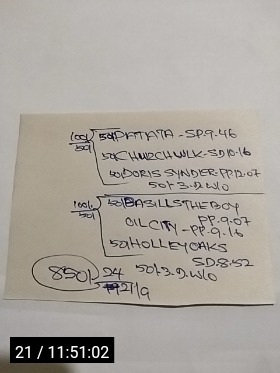 100/ 50/ PATATA - SP.9.46
50/
50/ CHURCHWLK - SD10.16
50/ DORIS SYNDER - PP12.07
50/- 3.D.W/O
100/ 50/ BASILLSTHEBOY
50/ PP.9.07
OIL CITY - PP.9.16
50/ HOLLEYOAKS
SD.8.52
850/ 24 50/- 3.D.W/O
21/9
21 / 11:51:02